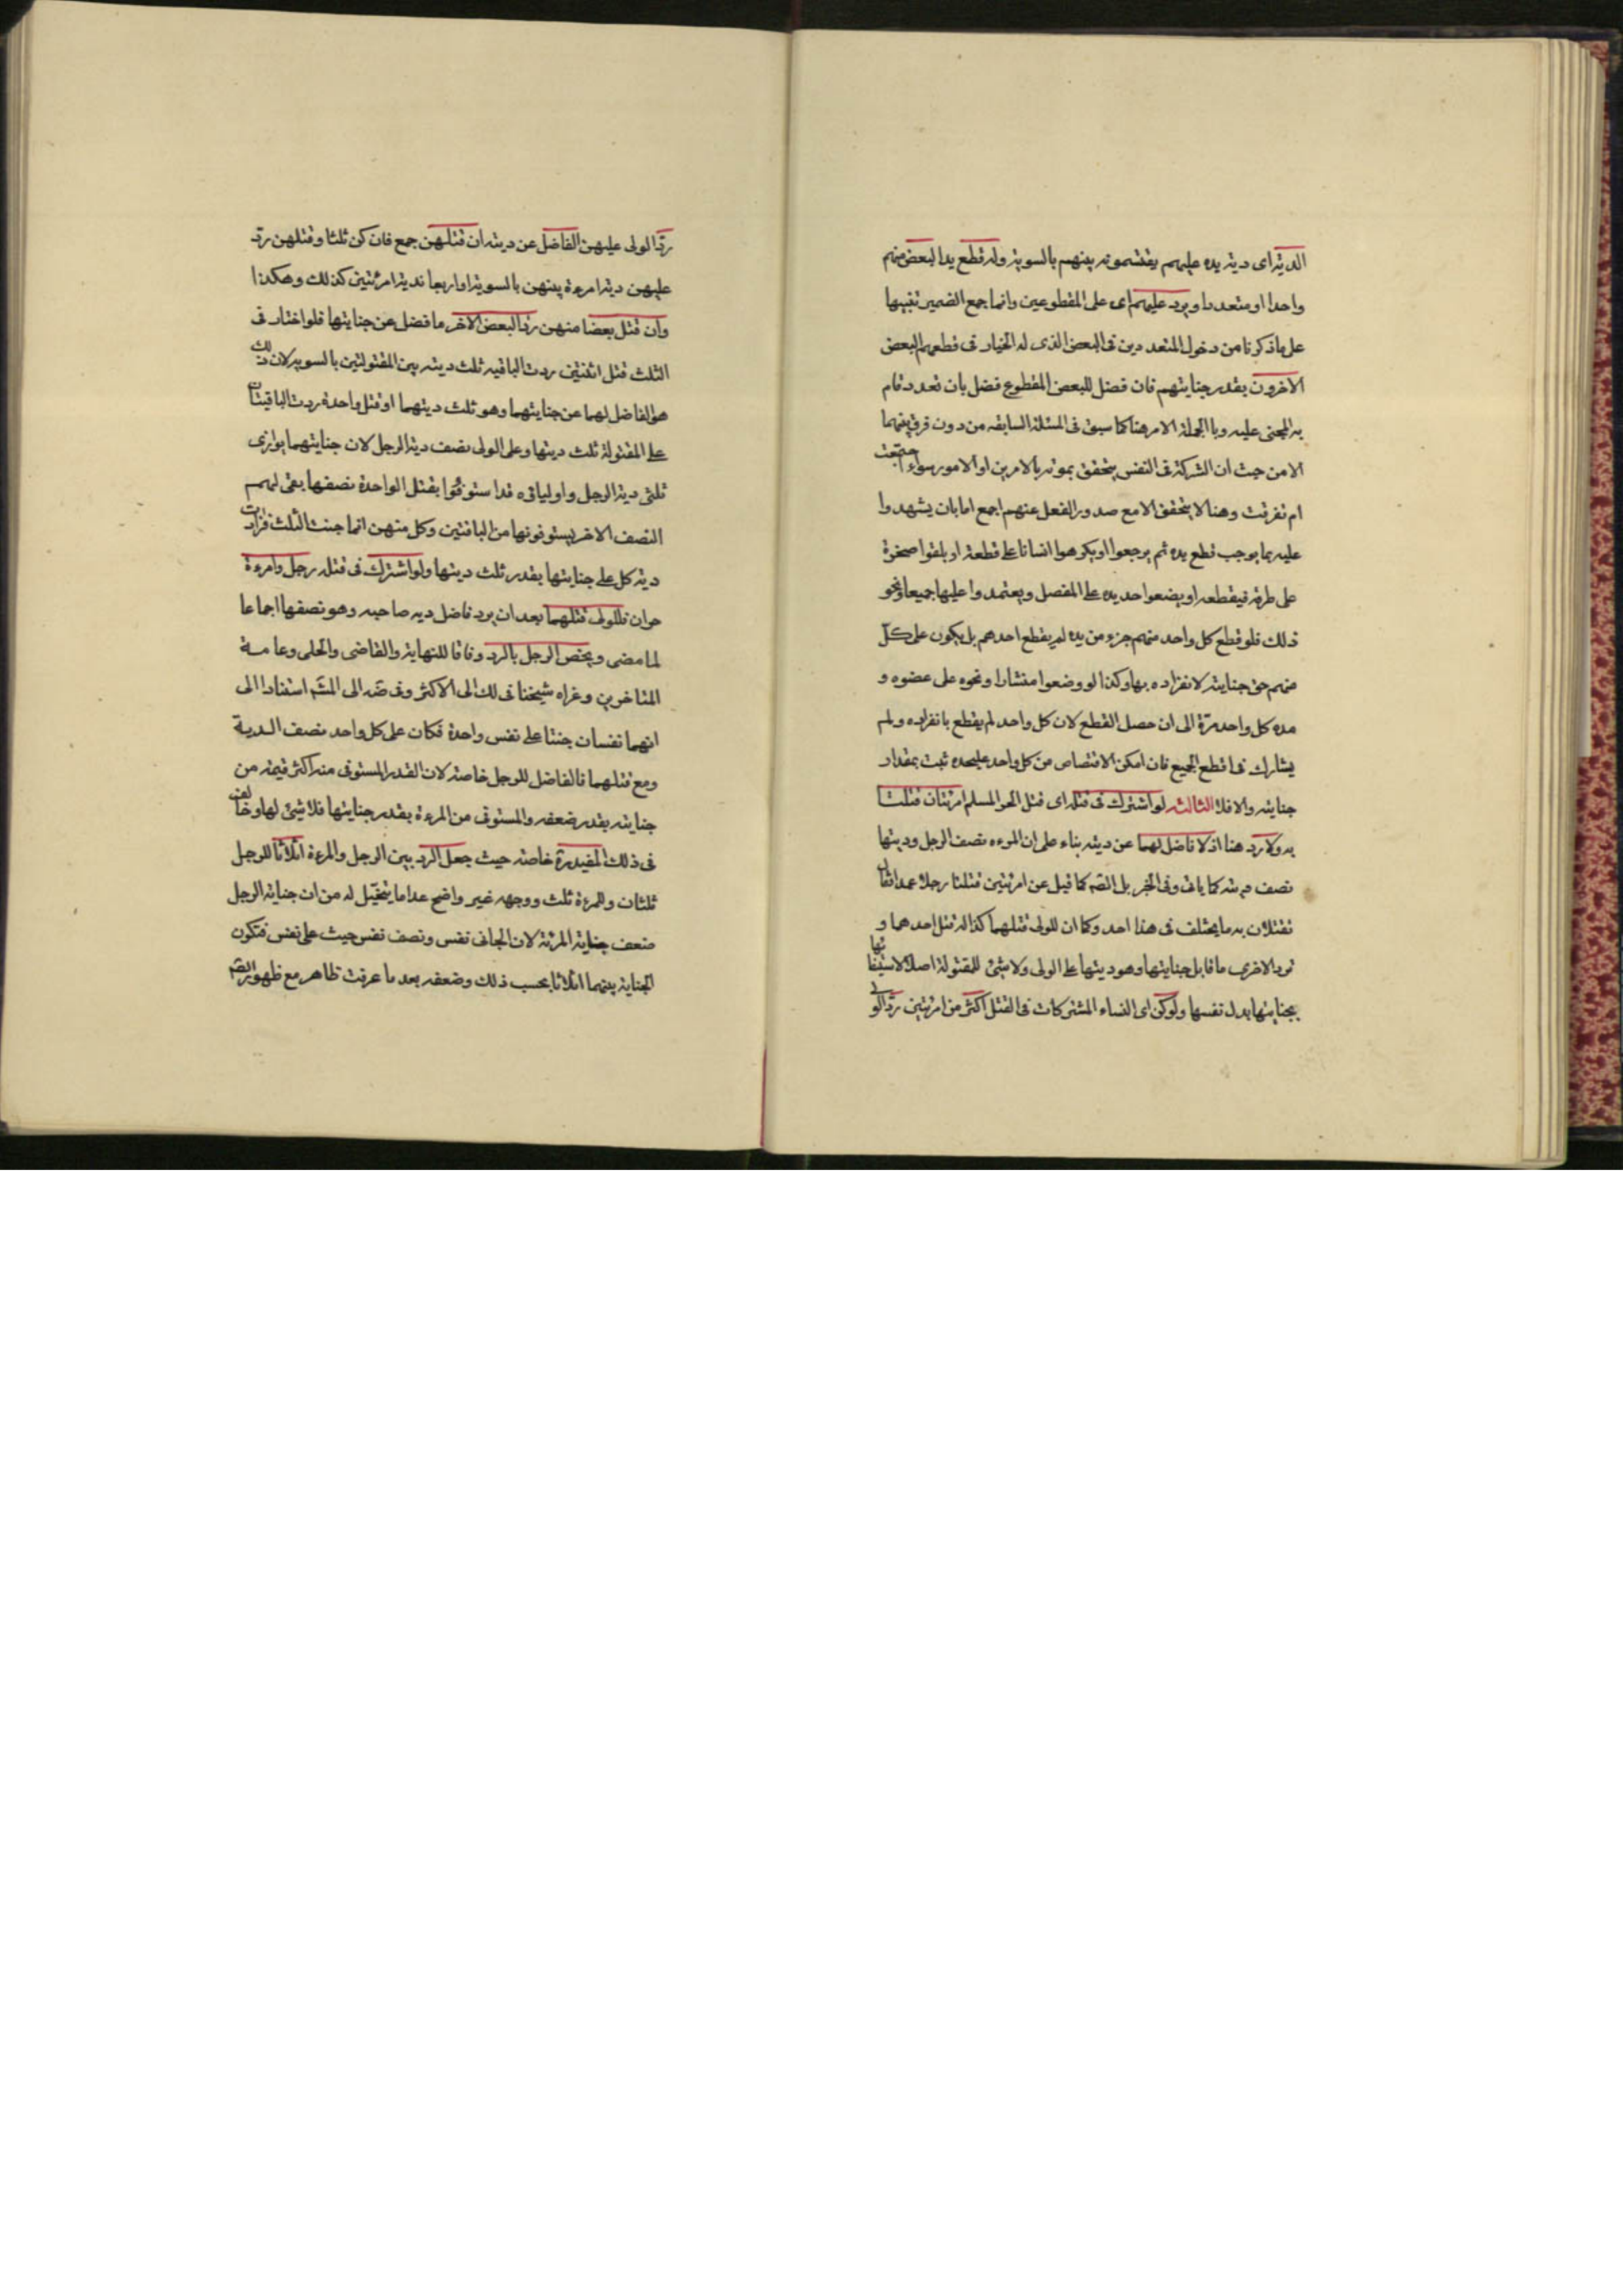 الدية اى دية يده عليهم يقتسمونه بينهم بالسوية وله قطع يد البعض منهم
واحدا او متعددا ويرد عليهم اى على المقطوعين وانما جمع الضمير تنبيها
على ماذكرنا من دخول المتعددين فى البعض الذى له الخيار فى قطعهم البعض
الاخرون بقدر جنايتهم فان فضل للبعض المقطوع فضل بان تعدد قام
به المجنى عليه وبا الجملة الامر هنا كما سبق فى المسئلة السابقه من دون فرق بينهما
الا من حيث ان الشركة فى النفس يتحقق بموته بالامرين او الامور سواء اجتمعت
ام تفرقت وهنا لا يتحقق الا مع صدور الفعل عنهم اجمع اما بان يشهدوا
عليه بما يوجب قطع يده ثم يرجعوا او يكرهوا انسانا على قطعه او يلقوا صخرة
على طرفه فيقطعه او يضعوا حديده على المفصل ويعتمدوا عليها جميعا ونحو
ذلك فلو قطع كل واحد منهم جزء من يده لم يقطع احدهم بل يكون على كل
منهم حق جنايته لانفراده بها وكذا لو وضعوا منشارا ونحوه على عضوه و
مده كل واحد مرة الى ان حصل القطع لان كل واحد لم يقطع بانفراده ولم
يشارك فى قطع الجميع فان امكن الاقتصاص من كل واحد عليحده ثبت بمقدار
جنايته والا فلا الثالثه لو اشترك فى قتله اى قتل الحر المسلم امرئتان قتلتا
به ولا رد هنا اذ لا فاضل لهما عن ديته بناء على ان المرءه نصف الرجل وديتها
نصف ديته كما ياتى وفى الخبر بل الصه كما قيل عن امرئتين قتلتا رجلا عمدا فقال
تقتلان به ما يختلف فى هذا احد وكما ان للولى قتلهما كذا له قتل احدهما و
ترد الاخرى ما قابل جنايتها وهو ديتها على الولى ولا شئ للمقتولة اصلا لاستيفائها
بجنايتها بدل نفسها ولو كن اى النساء المشتركات فى القتل اكثر من امرئتين رد الولى
رد الولى عليهن الفاضل عن ديته ان قتلهن جمع فان كن ثلثا وقتلهن رد
عليهن دية امرءة بينهن بالسوية او اربعا فدية امرئتين كذلك وهكذا
وان قتل بعضا منهن رد البعض الاخر ما فضل عن جنايتها فلو اختار فى
الثلث قتل اثنتين ردت الباقيه ثلث ديته بين المقتولتين بالسويه لان ذلك
هو الفاضل لهما عن جنايتهما وهو ثلث ديتهما او قتل واحدة ردت الباقيتان
على المقتولة ثلث ديتها وعلى الولى نصف دية الرجل لان جنايتهما يوازى
ثلثى دية الرجل واولياؤه قد استوفوا بقتل الواحدة نصفها بقى لهم
النصف الاخر يستوفونها من الباقتين وكل منهن انما جنت الثلث فزادت
دية كل على جنايتها بقدر ثلث ديتها ولو اشترك فى قتله رجل وامرءة
حران فللولى قتلهما بعد ان يرد فاضل ديه صاحبه وهو نصفها اجماعا
لما مضى ويختص الرجل بالرد وفاقا للنهاية والقاضى والحلى وعامة
المتاخرين وعزاه شيخنا فى لك الى الاكثر وفى ضه الى المشهم استنادا الى
انهما نفسان جنتا على نفس واحدة فكان على كل واحد نصف الدية
ومع قتلهما فالفاضل للرجل خاصة لان القدر المستوفى منه اكثر قيمة من
جنايته بقدر ضعفه والمستوفى من المرءة بقدر جنايتها فلا شئ لها وخالف
فى ذلك المفيد ره خاصه حيث جعل الرد بين الرجل والمرءة اثلاثا للرجل
ثلثان وللمرءة ثلث ووجهه غير واضح عدا ما يتخيل له من ان جناية الرجل
ضعف جناية المرئة لان الجانى نفس ونصف نفس حيث على نفس فتكون
الجناية بينهما اثلاثا بحسب ذلك وضعفه بعد ما عرفت ظاهر مع ظهور الصه